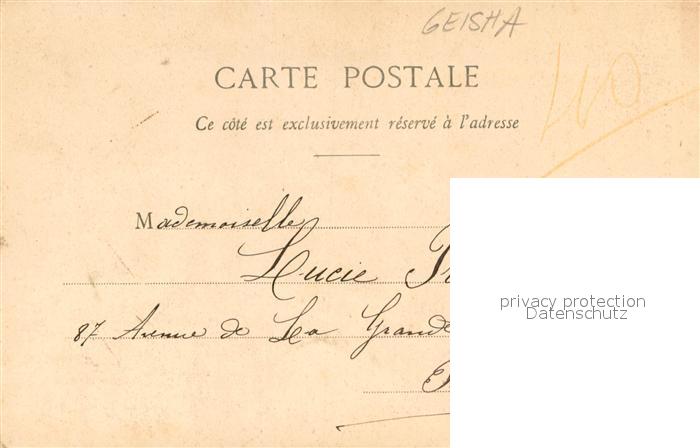 GEISHA
CARTE POSTALE
40
Ce côté est exclusivement réservé à l'adresse
Mademoiselle
Lucie
privacy protection
Datenschutz
87 Avenue de La Grande